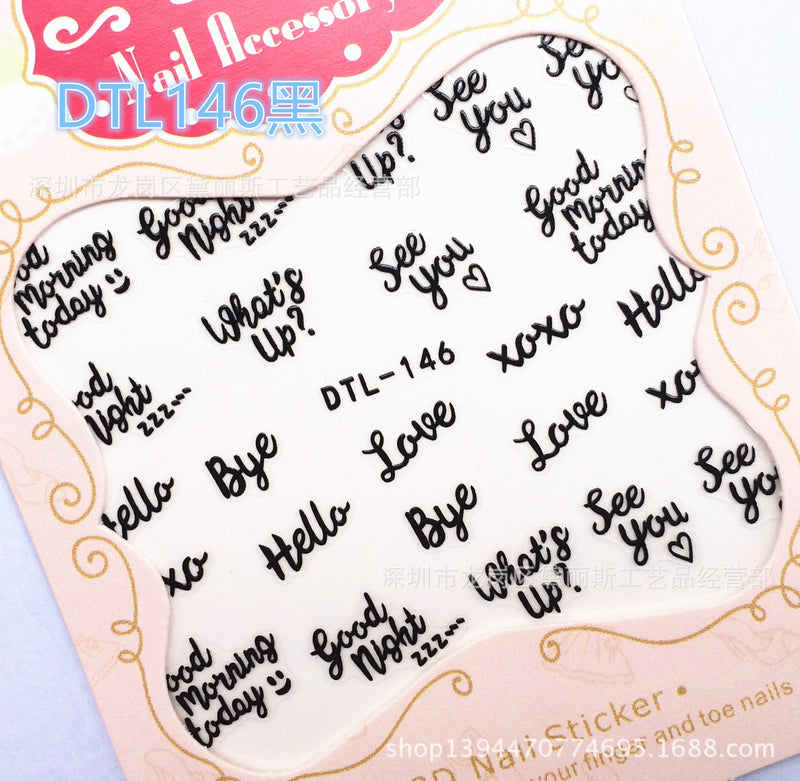 Nail Accessory
DTL146黑
深圳市龙岗区黛丽斯工艺品经营部
See
You
See
You
Up?
Good
Night
zzz...
Good
Morning
today
Morning
today
What's
Up?
See
You
Hello
xoxo
DTL-146
Night
zzz...
Love
Love
Bye
Hello
Bye
Hello
See
You
See
You
What's
Up?
深圳市龙岗区黛丽斯工艺品经营部
Good
Night
zzz...
Morning
today
Sticker
your finger and toe nails
shop1394470774695.1688.com